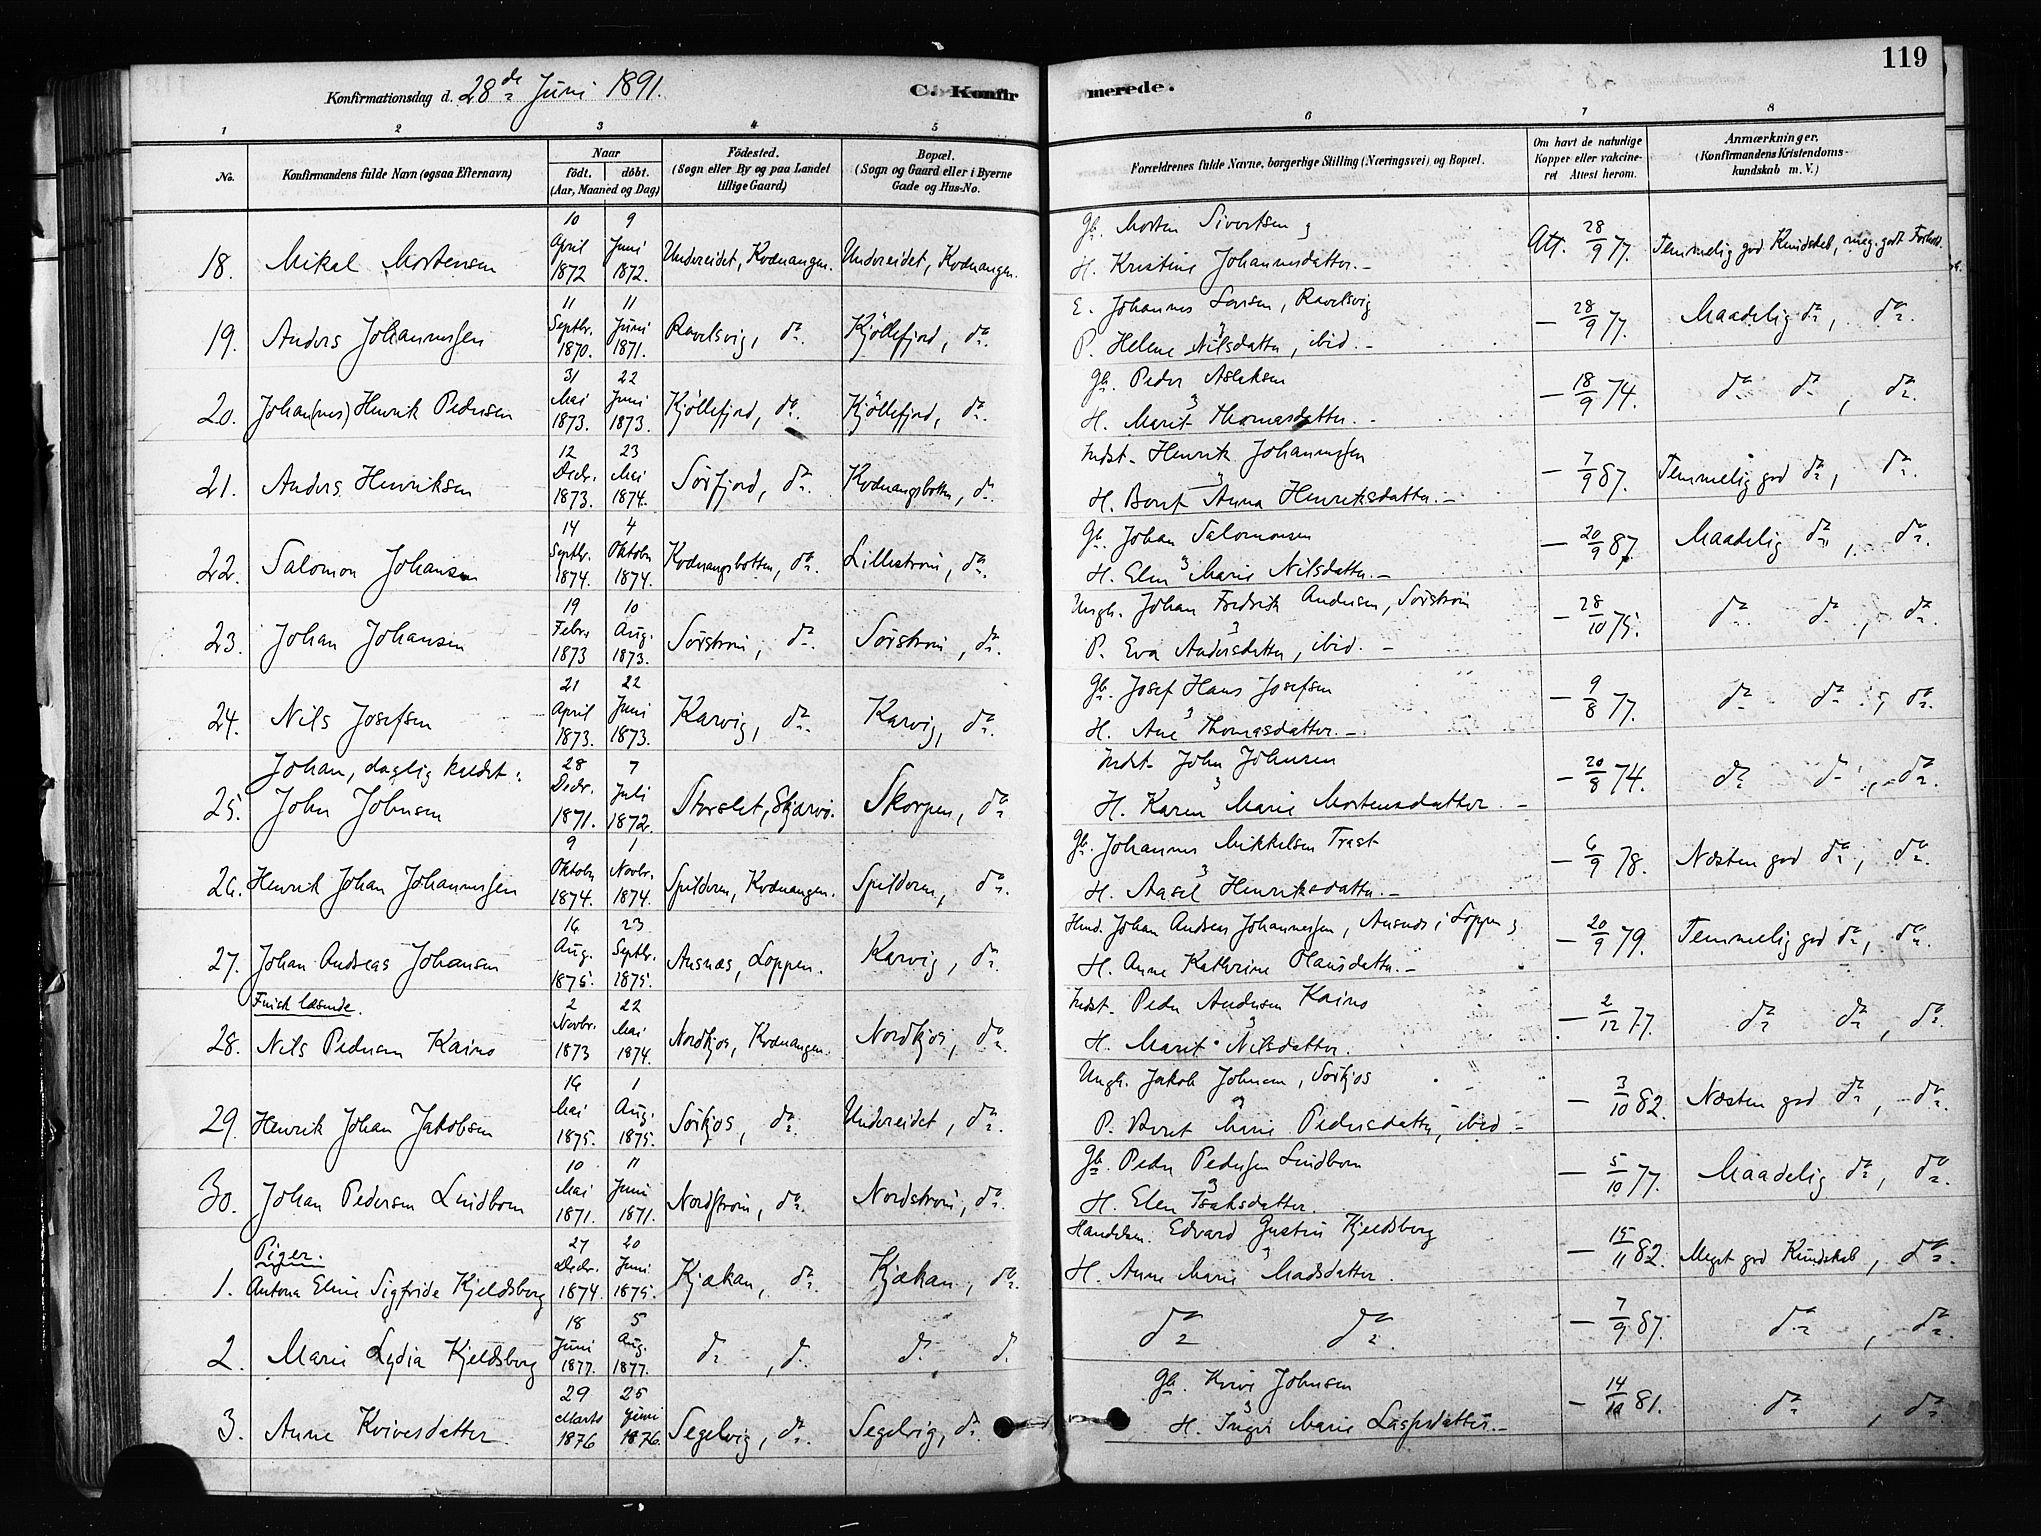 119
Konfirmationsdag d. 28de Juni 1891.
C. Konfirmerede.
1 2 3 4 5 6 7 8
No.
Konfirmandens fulde Navn (ogsaa Efternavn)
Naar
födt. döbt.
(Aar, Maaned og Dag)
Födested.
(Sogn eller By og paa Landet
tillige Gaard)
Bopæl.
(Sogn og Gaard eller i Byerne
Gade og Hus-No.
Forældrenes fulde Navne, borgerlige Stilling (Næringsvei) og Bopæl.
Om havt de naturlige
Kopper eller vakcine-
ret Attest herom.
Anmærkninger.
(Konfirmandens Kristendoms-
kundskab m. V.)
18. Mikal Mortensen 10 April 1872 9 Juni 1872. Undereidet, Kvænangen. Undereidet, Kvænangen. Gb. Morten Sivertsen
H. Kristine Johannesdatter. Att. 28/9 77. Temmelig god Kundskab, meg. godt Forhold.
19. Anders Johannessen 11 Septbr. 1870. 11 Juni 1871. Ravelsvig, do. Kjöllefjord, do. E. Johannes Larsen, Ravelsvig
P. Helene Nilsdatter, ibid. 28/9 77. Maadelig do, do.
20. Johan(nes) Henrik Pedersen 31 Mai 1873. 22 Juni 1873. Kjöllefjord, do. Kjöllefjord, do. Gb. Peder Aslaksen
H. Marit Thomasdatter. 18/9 74. do do, do.
21. Anders Henriksen 12 Decbr. 1873. 23 Mai 1874. Sörfjord, do. Kvænangsbotten, do. Indst. Henrik Johannessen
H. Berit Anna Henriksdatter. 7/9 87. Temmelig god do, do.
22. Salomon Johansen 14 Septbr. 1874. 4 Oktobr. 1874. Kvænangsbotten, do. Lillestrøm, do. Gb. Johan Salomonsen
H. Elen Marie Nilsdatter. 20/9 87. Maadelig do, do.
23. Johan Johansen 19 Febr. 1873 10 Aug. 1873. Sørstrøm, do. Sørstrøm, do. Ungk. Johan Fredrik Andersen, Sørstrøm
P. Eva Andersdatter, ibid. 28/10 75. do do, do.
24. Nils Josefsen 21 April 1873. 22 Juni 1873. Karvig, do. Karvig, do. Gb. Josef Hans Josefsen
H. Ane Thomasdatter. 9/8 77. do do, do.
Johan, daglig kaldet:
25. John Johnsen 28 Decbr. 1871. 7 Juli 1872. Storslet, Skjærvø. Skorpen, do. Indst. John Johnsen
H. Karen Marie Mortensdatter. 20/8 74. do do, do.
26. Henrik Johan Johannessen 9 Oktobr 1874. 1 Novbr. 1874. Spildern, Kvænangen. Spildern, do. Gb. Johannes Mikkelsen Trast
H. Aasel Henriksdatter. 6/9 78. Næsten god do, do.
27. Johan Andreas Johansen 16 Aug. 1875. 23 Septbr. 1875. Ausnæs, Loppen. Karvig, do. Johan Andreas Johannessen, Ausnæs i Loppen
H. Anne Kathrine Olausdatter. 20/9 79. Temmelig god do, do.
Finsk læsende.
28. Nils Pedersen Kaino 2 Novbr. 1873 22 Mai 1874. Nordkjos, Kvænangen. Nordkjos, do. Indst. Peder Andersen Kaino
H. Marit Nilsdatter. 2/12 77. do do, do.
29. Henrik Johan Jakobsen 16 Mai 1875. 1 Aug. 1875. Sørkjos, do. Undereidet, do. Ungk. Jakob Johnsen, Sørkjos
P. Beret Marie Pedersdatter, ibid. 3/10 82. Næsten god do, do.
30. Johan Pedersen Lindbom 10 Mai 1871. 11 Juni 1871. Nordstrøm, do. Nordstrøm, do. Gb. Peder Pedersen Lindbom
H. Elen Isaksdatter. 5/10 77. Maadelig do, do.
Piger.
1. Antona Eline Sigfride Kjeldsberg 27 Decbr. 1874. 20 Juni 1875. Kjækan, do. Kjækan, do. Handelsm. Edvard Gustin Kjeldsberg
H. Anne Marie Madsdatter. 15/11 82. Meget god Kundskab, do.
2. Marie Lydia Kjeldsberg 18 Juni 1877. 5 Aug. 1877. do, do. do do do do 7/9 87. do, do.
3. Anne Kvivesdatter 29 Marts 1876 25 Juni 1876. Segelvig, do. Segelvig, do. Gb. Kvive Johnsen
H. Inger Marie Larsdatter. 14/10 81. do, do.